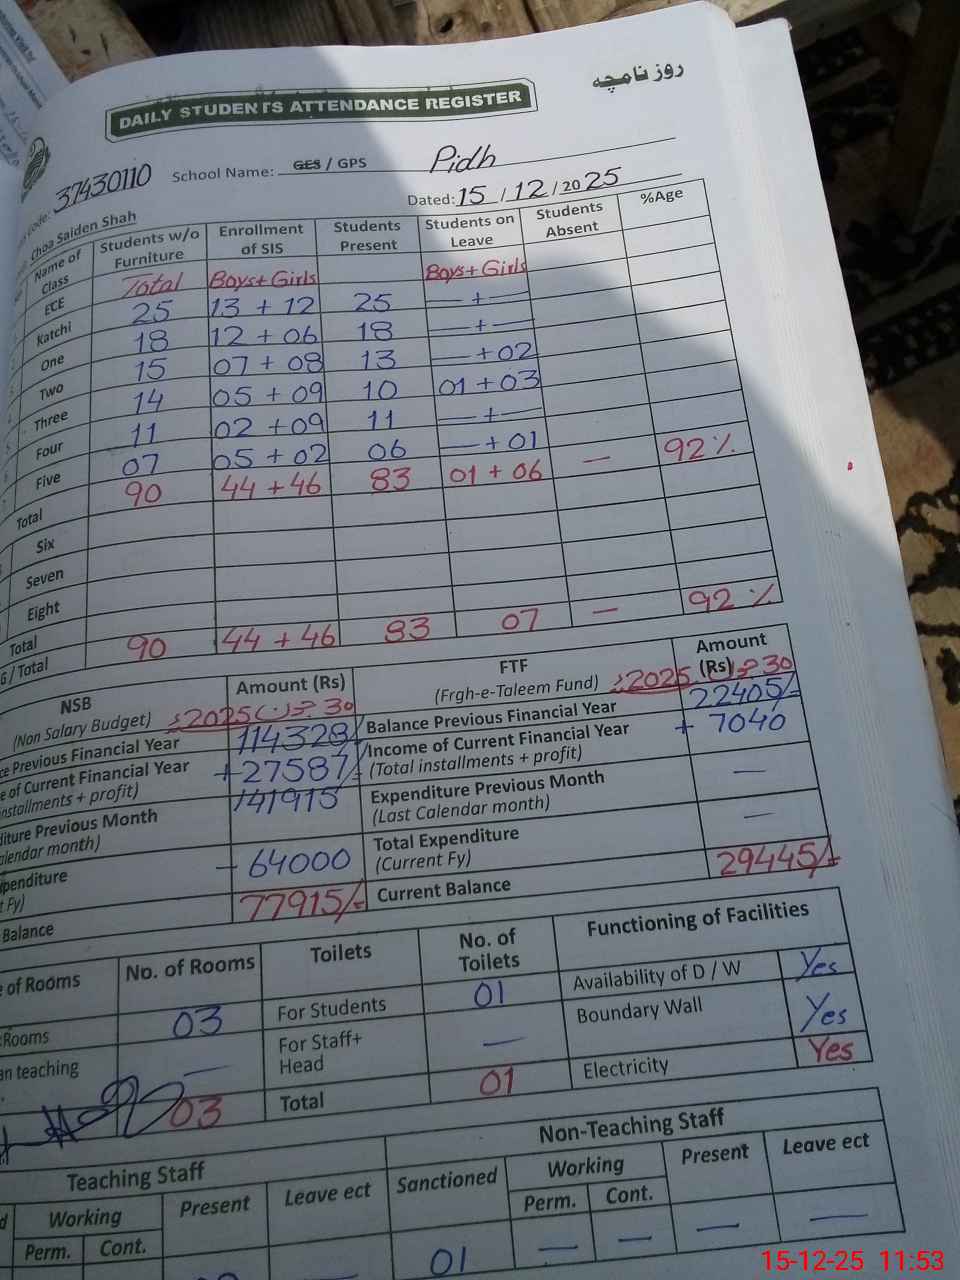 روزنامچہ
DAILY STUDENTS ATTENDANCE REGISTER
Code: 37430110 School Name: GES / GPS Pidh
Choa Saiden Shah Dated: 15 / 12 / 2025
Name of Class Students w/o Furniture Enrollment of SIS Students Present Students on Leave Students Absent %Age
Total Boys+Girls Boys+Girls
ECE 25 13 + 12 25 — + —
Katchi 18 12 + 06 18 — + —
One 15 07 + 08 13 — + 02
Two 14 05 + 09 10 01 + 03
Three 11 02 + 09 11 — + —
Four 07 05 + 02 06 — + 01
Five 90 44 + 46 83 01 + 06 — 92 %
Total
Six
Seven
Eight
Total 90 44 + 46 83 07 — 92 %
G / Total
NSB Amount (Rs) FTF Amount (Rs)
(Non Salary Budget) 30 جون 2025 (Frgh-e-Taleem Fund) 30 جون 2025
ce Previous Financial Year 114328/- Balance Previous Financial Year 22405/-
e of Current Financial Year +27587/- Income of Current Financial Year + 7040
nstallments + profit) 141915 (Total installments + profit)
diture Previous Month Expenditure Previous Month —
alendar month) (Last Calendar month)
penditure - 64000 Total Expenditure —
t Fy) (Current Fy)
Balance 77915/- Current Balance 29445/-
e of Rooms No. of Rooms Toilets No. of Toilets Functioning of Facilities
Rooms 03 For Students 01 Availability of D / W Yes
an teaching — For Staff+ Head — Boundary Wall Yes
03 Total 01 Electricity Yes
Teaching Staff Non-Teaching Staff
Working Present Leave ect Sanctioned Working Present Leave ect
Perm. Cont. Perm. Cont.
01 — — — —
15-12-25 11:53